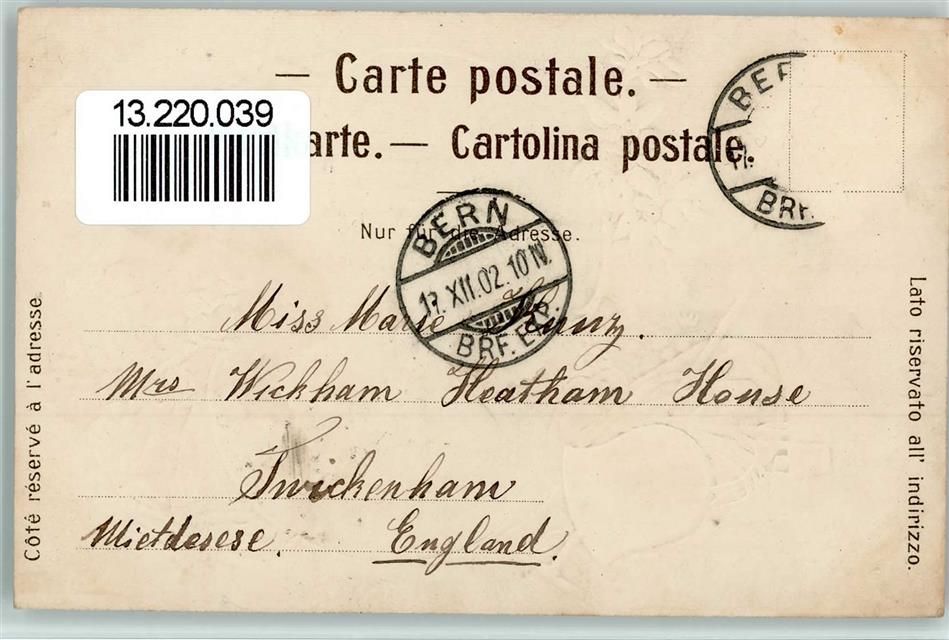 — Carte postale. —
13.220.039
karte. — Cartolina postale.
Nur für die Adresse.
BERN
17. XII. 02. 10 IV.
BRF. EXP.
BER
BRF.
Miss Marie Kunz.
Mrs Wickham Heatham House
Twickenham
Mietdesese. England.
Côté réservé à l'adresse.
Lato riservato all' indirizzo.